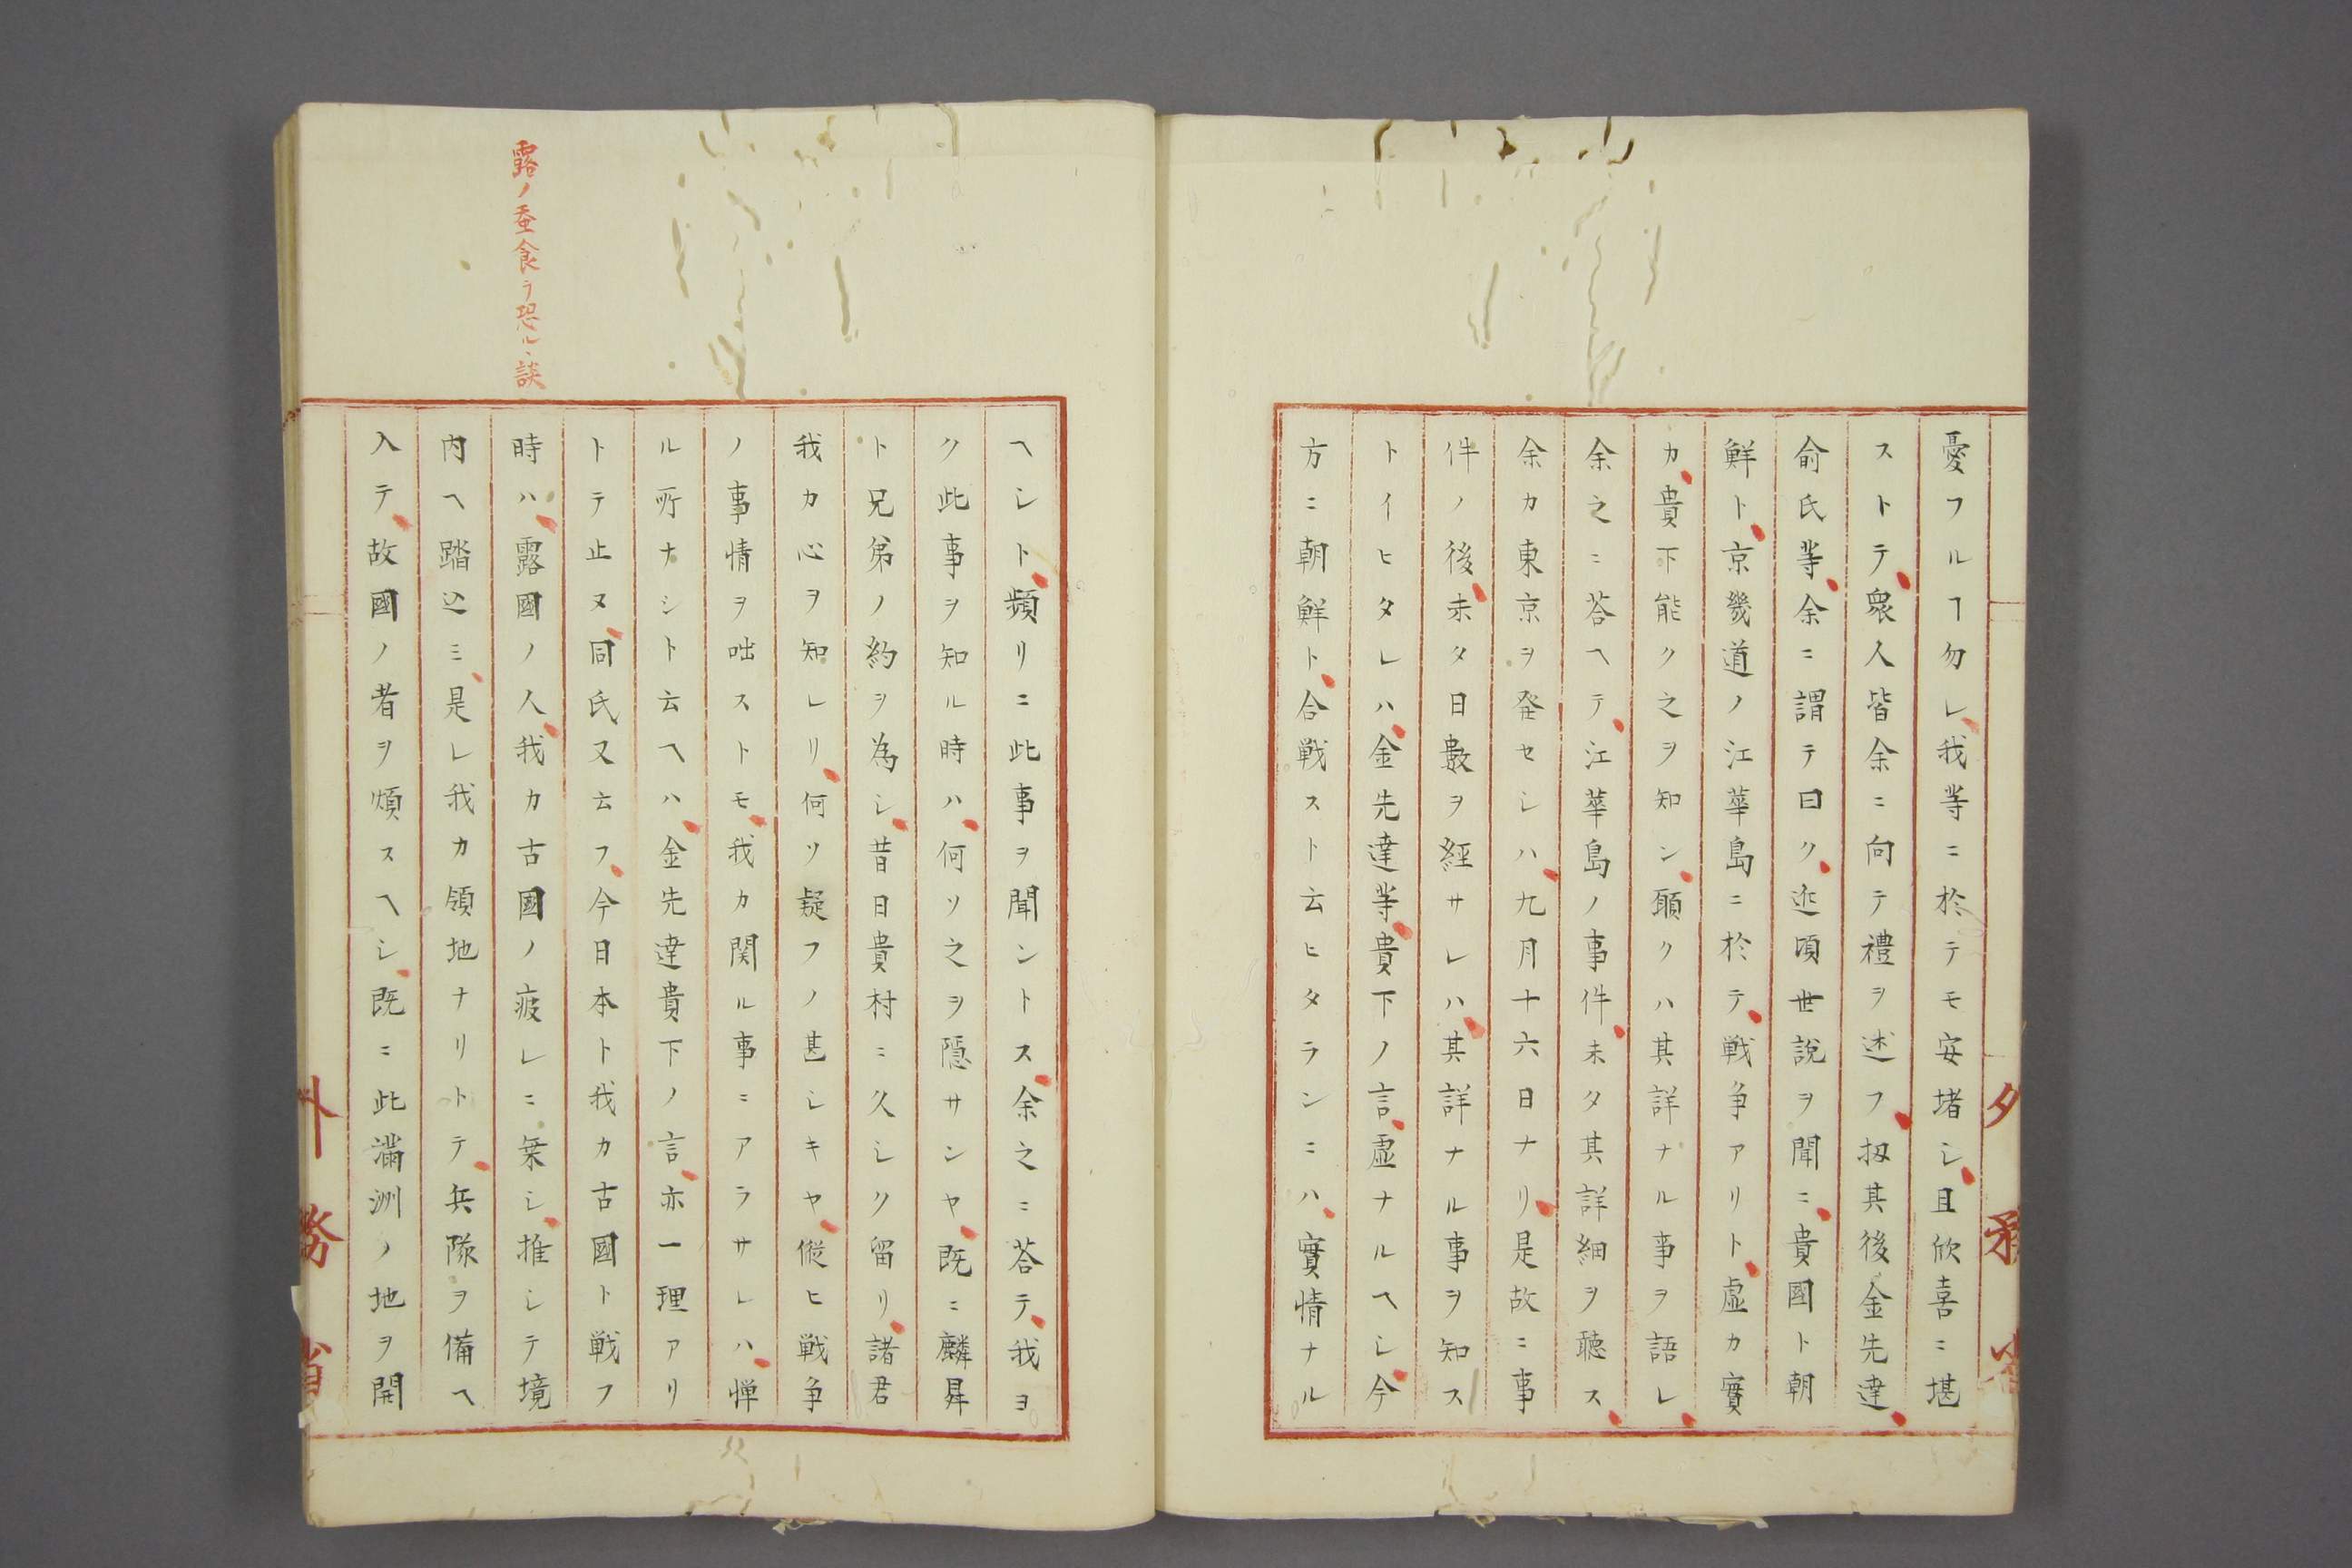 憂フルヿ勿レ、我等ニ於テモ安堵シ、且欣喜ニ堪
ストテ、衆人皆余ニ向テ禮ヲ述フ、扨其後金先達、
俞氏等、余ニ謂テ曰ク、近頃世説ヲ聞ニ、貴國ト朝
鮮ト、京畿道ノ江華島ニ於テ、戦争アリト、虚カ實
カ、貴下能ク之ヲ知ン、願クハ其詳ナル事ヲ語レ、
余之ニ荅ヘテ、江華島ノ事件、未タ其詳細ヲ聴ス、
余カ東京ヲ発セシハ、九月十六日ナリ、是故ニ事
件ノ後、未タ日數ヲ經サレハ、其詳ナル事ヲ知ス
トイヒタレハ、金先達等、貴下ノ言、虚ナルヘシ、今
方ニ朝鮮ト、合戦スト云ヒタランニハ、實情ナル
外務省
露ノ蚕食ヲ恐ルヽ談
ヘシト、頻リニ此事ヲ聞ントス、余之ニ荅テ、我ヨ
ク此事ヲ知ル時ハ、何ソ之ヲ隠サンヤ、既ニ麟昇
ト兄弟ノ約ヲ為シ、昔日貴村ニ久シク留リ、諸君
我カ心ヲ知レリ、何ソ疑フノ甚シキヤ、縦ヒ戦争
ノ事情ヲ咄ストモ、我カ関ル事ニアラサレハ、憚
ル所ナシト云ヘハ、金先達貴下ノ言、亦一理アリ
トテ止ヌ、同氏又云フ、今日本ト我カ古國ト戦フ
時ハ、露國ノ人、我カ古國ノ疲レニ乗シ、推シテ境
内ヘ踏込ミ、是レ我カ領地ナリトテ、兵隊ヲ備ヘ
入テ、故國ノ者ヲ煩スヘシ、既ニ此滿洲ノ地ヲ開
外務省